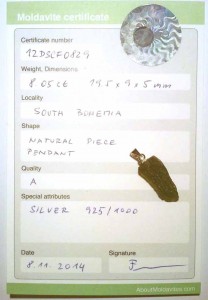 Moldavite certificate
Certificate number
12DSCF0829
Weight, Dimensions
8.05 ct 19.5 x 9 x 5 mm
Locality
SOUTH BOHEMIA
Shape
NATURAL PIECE
PENDANT
Quality
A
Special attributes
SILVER 925/1000
Date
Signature
8.11.2014